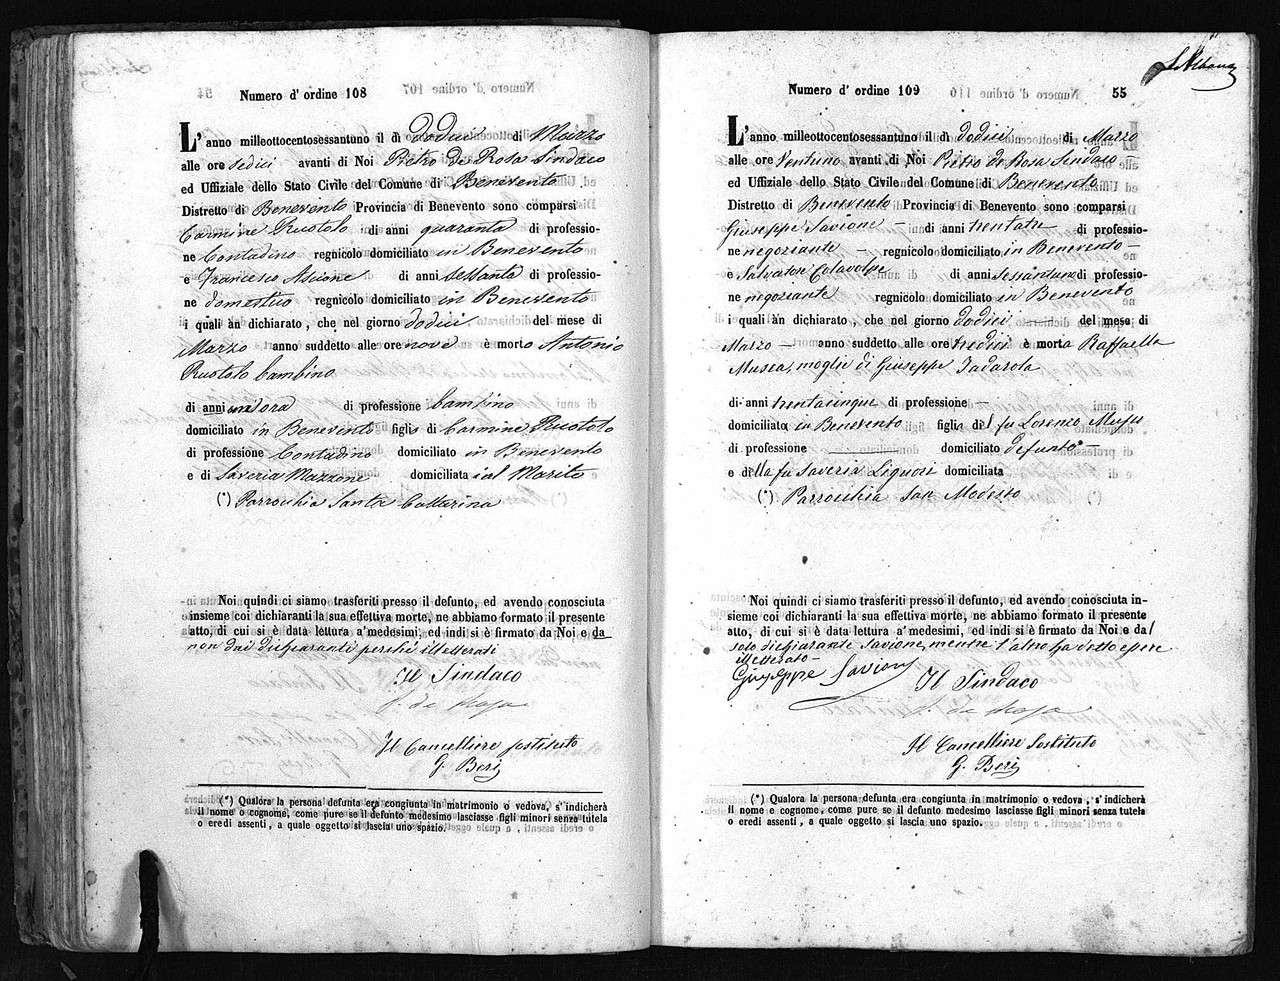 Numero d' ordine 108
L'anno milleottocentosessantuno il dì dodici di Marzo
alle ore sedici avanti di Noi Pietro de Rosa Sindaco
ed Uffiziale dello Stato Civile del Comune di Benevento
Distretto di Benevento Provincia di Benevento sono comparsi
Carmine Ruotolo di anni quaranta di professio-
ne Contadino regnicolo domiciliato in Benevento
e Francesco di anni sessanta di professio-
ne domestico regnicolo domiciliato in Benevento
i quali àn dichiarato, che nel giorno dodici del mese di
Marzo anno suddetto alle ore nove è morto Antonio
Ruotolo bambino
di anni un'ora di professione bambino
domiciliato in Benevento figlio di Carmine Ruotolo
di professione Contadino domiciliato in Benevento
e di Saveria Mazzone domiciliata col Marito
(*) Parrocchia Santa Catterina
Noi quindi ci siamo trasferiti presso il defunto, ed avendo conosciuta
insieme coi dichiaranti la sua effettiva morte, ne abbiamo formato il presente
atto, di cui si è data lettura a' medesimi, ed indi si è firmato da Noi e da
non dai dichiaranti perché illetterati
Il Sindaco
P. de Rosa
Il Cancelliere sostituto
G. Beri
(*) Qualora la persona defunta era congiunta in matrimonio o vedova, s'indicherà
il nome o cognome, come pure se il defunto medesimo lasciasse figli minori senza tutela
o eredi assenti, a quale oggetto si lascia uno spazio.
Numero d' ordine 109
55
L'anno milleottocentosessantuno il dì dodici di Marzo
alle ore Ventuno avanti di Noi Pietro de Rosa Sindaco
ed Uffiziale dello Stato Civile del Comune di Benevento
Distretto di Benevento Provincia di Benevento sono comparsi
Giuseppe Savione - di anni trentatre di professio-
ne negoziante - regnicolo domiciliato in Benevento -
e Salvatore Colavolpe di anni sessantuno di professio-
ne negoziante regnicolo domiciliato in Benevento
i quali àn dichiarato, che nel giorno dodici del mese di
Marzo - anno suddetto alle ore tredici è morta Raffaella
Musea, moglie di Giuseppe Iadarola
di anni trentacinque di professione -
domiciliata in Benevento figlia del fu Lorenzo
di professione domiciliato defunto -
e della fu Saveria Liguori domiciliata
(*) Parrocchia San Modesto
Noi quindi ci siamo trasferiti presso il defunto, ed avendo conosciuta in-
sieme coi dichiaranti la sua effettiva morte, ne abbiamo formato il presente
atto, di cui si è data lettura a' medesimi, ed indi si è firmato da Noi e dal
solo dichiarante Savione, mentre l'altro ha detto essere
illetterato -
Giuseppe Savione
Il Sindaco
P. de Rosa
Il Cancelliere Sostituto
G. Beri
(*) Qualora la persona defunta era congiunta in matrimonio o vedova, s'indicherà
il nome e cognome, come pure se il defunto medesimo lasciasse figli minori senza tutela
o eredi assenti, a quale oggetto si lascia uno spazio.